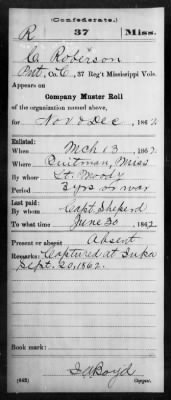 (Confederate.)
R 37 Miss.
C Roberson
Pvt, Co. C, 37 Reg't Mississippi Vols.
Appears on
Company Muster Roll
of the organization named above,
for Nov & Dec, 1862
Enlisted:
When Mch 13, 1862
Where Quitman, Miss
By whom Lt. Moody
Period 3 yrs or war
Last paid:
By whom Capt Sheperd
To what time June 30, 1862
Present or absent Absent
Remarks: Captured at Iuka
Sept. 20, 1862.
Book mark:
(642) Copyist.